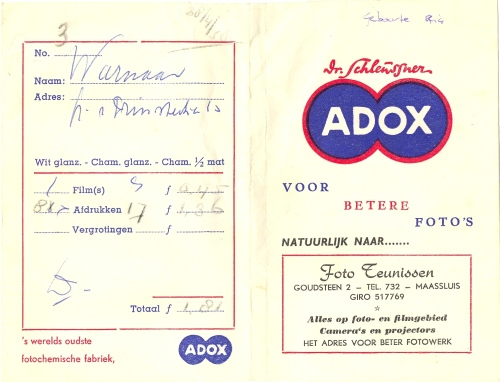 20/4/
No. 3
Naam: Warnaar
Adres:
Wit glanz. - Cham. glanz. - Cham. ½ mat
1 Film(s) f 0.45
8x Afdrukken 17 f 1.36
Vergrotingen f
Totaal f 1.81
's werelds oudste
fotochemische fabriek,
ADOX
Geboorte
Dr. Schleussner
ADOX
VOOR
BETERE
FOTO'S
NATUURLIJK NAAR.......
Foto Teunissen
GOUDSTEEN 2 - TEL. 732 - MAASSLUIS
GIRO 517769
Alles op foto- en filmgebied
Camera's en projectors
HET ADRES VOOR BETER FOTOWERK